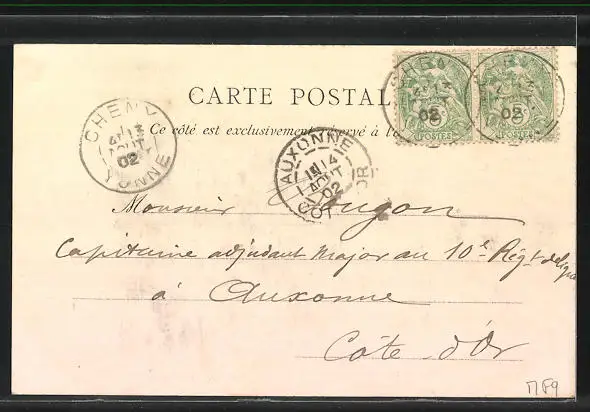 CARTE POSTALE
Ce côté est exclusivement réservé à l'a
CHENY
4E 13
AOUT
02
YONNE
AUXONNE
1E 14
AOUT
02
COTE D'OR
CHENY
13
02
5
POSTES
5
POSTES
Monsieur Gougon
Capitaine adjudant Major au 10e Régt de ligne
à Auxonne
Côte d'Or